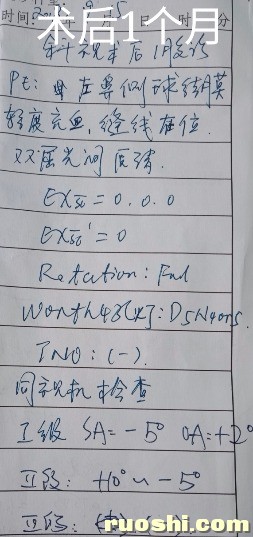 时间:
术后1个月
斜视术后1月复诊
PE: 左鼻侧球结膜
轻度充血,缝线在位.
双屈光间质清.
EXsc = 0, 0, 0
EXsc' = 0
Rotation: Full
Worth4孔灯: D5N4ons.
TNO: (-).
同视机检查
I级 SA=-5° OA=+2°
II级: +10°~-5°
III级:
ruoshi.com